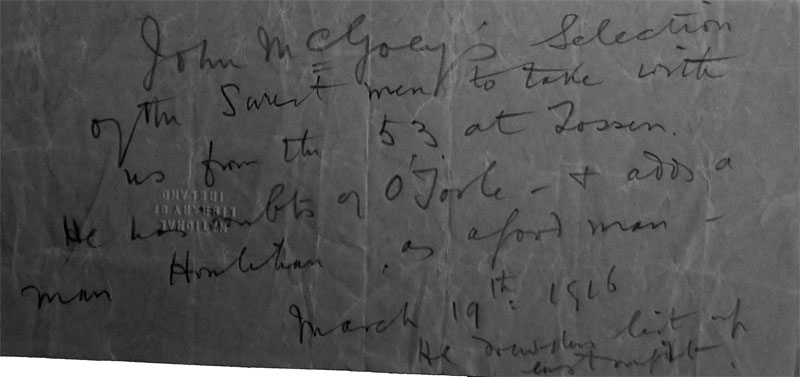 John McGoey's Selection
of the Surest men to take with
us from the 53 at Zossen.
He has doubts of O'Toole - & adds a
man Houlihan, as a good man -
March 19th. 1916
He drew this list up
last night.
NATIONAL
LIBRARY OF
IRELAND